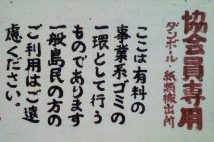 協会員専用
ダンボール・紙類搬出所
ここは有料の
事業系ゴミの
一環として行う
ものであります
一般島民の方の
ご利用はご遠
慮ください。